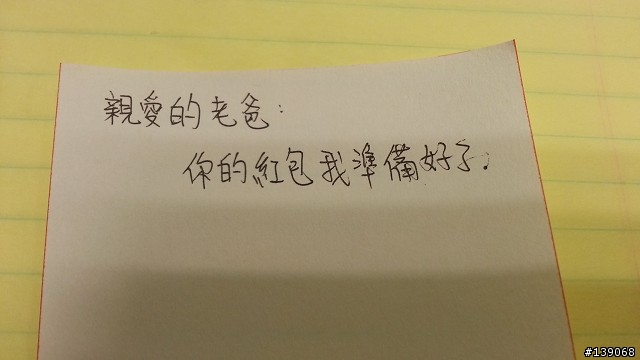 親愛的老爸：
你的紅包我準備好了。
#139068